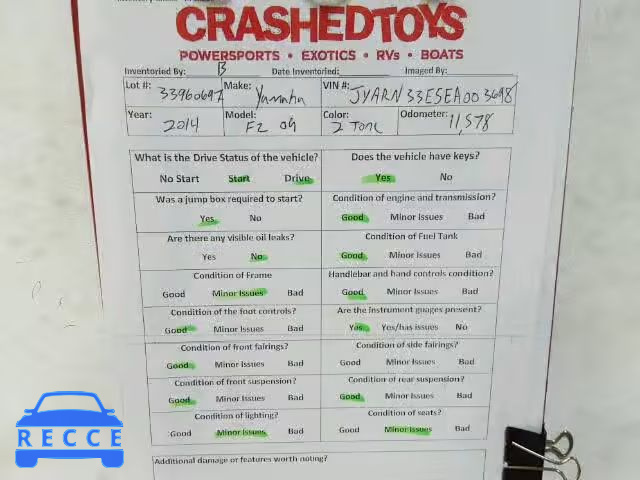 CRASHEDTOYS
POWERSPORTS • EXOTICS • RVs • BOATS
Inventoried By: B Date Inventoried: Imaged By:
Lot #: 33960697 Make: Yamaha VIN #: JYARN33E5EA003698
Year: 2014 Model: FZ 09 Color: 2 Tone Odometer: 11,578
What is the Drive Status of the vehicle? Does the vehicle have keys?
No Start Start Drive Yes No
Was a jump box required to start? Condition of engine and transmission?
Yes No Good Minor Issues Bad
Are there any visible oil leaks? Condition of Fuel Tank
Yes No Good Minor Issues Bad
Condition of Frame Handlebar and hand controls condition?
Good Minor Issues Bad Good Minor Issues Bad
Condition of the foot controls? Are the instrument guages present?
Good Minor Issues Bad Yes Yes/has issues No
Condition of front fairings? Condition of side fairings?
Good Minor Issues Bad Good Minor Issues Bad
Condition of front suspension? Condition of rear suspension?
Good Minor Issues Bad Good Minor Issues Bad
Condition of lighting? Condition of seats?
Good Minor Issues Bad Good Minor Issues Bad
Additional damage or features worth noting?
RECCE